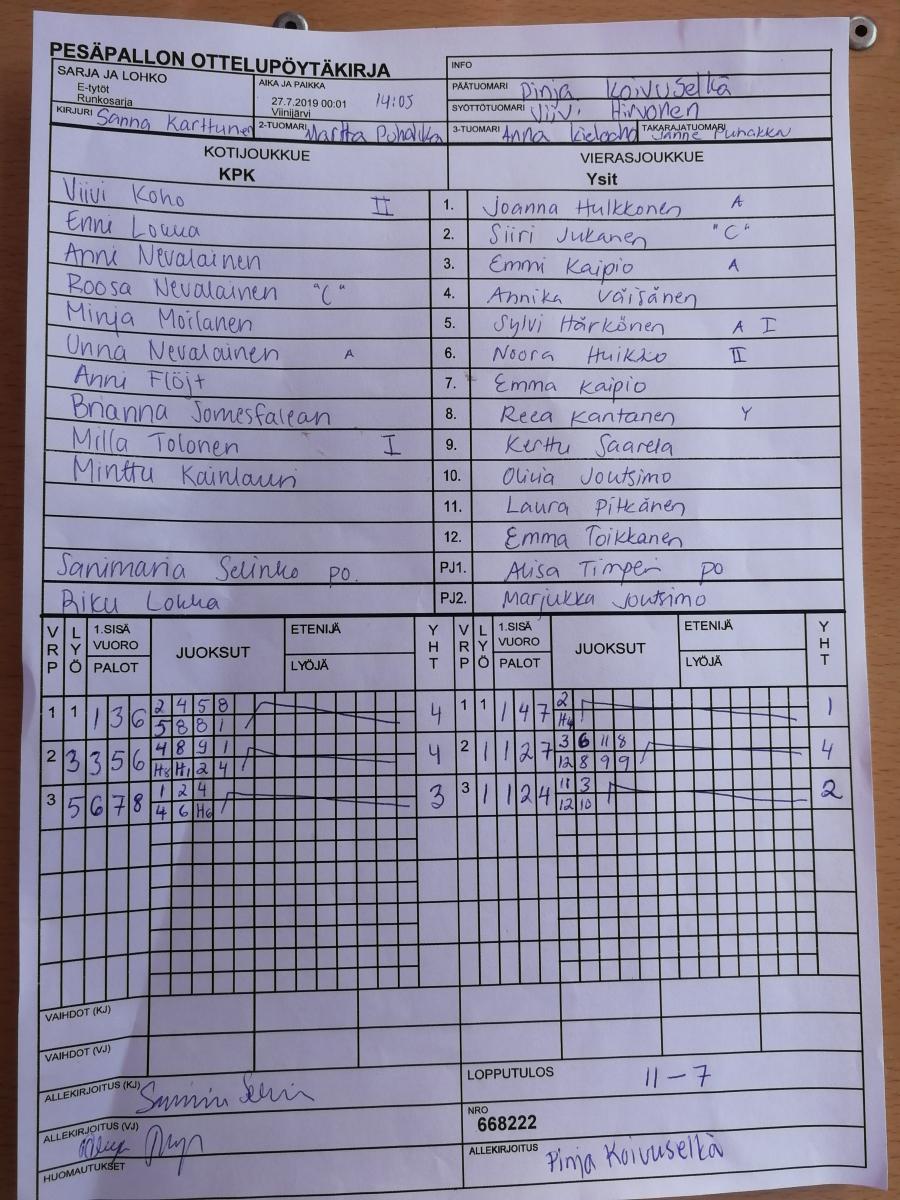 PESÄPALLON OTTELUPÖYTÄKIRJA
INFO
SARJA JA LOHKO
E-tytöt
Runkosarja
AIKA JA PAIKKA
27.7.2019 00:01 14:05
Viinijärvi
PÄÄTUOMARI Pinja Koivuselkä
SYÖTTÖTUOMARI Viivi Hirvonen
KIRJURI Sanna Karttunen
2-TUOMARI Martta Puhakka
3-TUOMARI Anna
TAKARAJATUOMARI Janne Puhakka
KOTIJOUKKUE
KPK
VIERASJOUKKUE
Ysit
Viivi Koho II 1. Joanna Hulkkonen A
Enni Loukka 2. Siiri Jukanen "C"
Anni Nevalainen 3. Emmi Kaipio A
Roosa Nevalainen "C" 4. Annika Väisänen
Minja Moilanen 5. Sylvi Härkönen A I
Unna Nevalainen A 6. Noora Huikko II
Anni Flöjt 7. Emma Kaipio
Brianna 8. Reea Kantanen Y
Milla Tolonen I 9. Kerttu Saarela
Minttu Kainlauri 10. Olivia Joutsimo
11. Laura Pitkänen
12. Emma Toikkanen
Sanimaria Selinko po. PJ1. Alisa Timperi po
Riku Loukka PJ2. Marjukka Joutsimo
VRP LYÖ 1.SISÄ VUORO PALOT JUOKSUT ETENIJÄ LYÖJÄ YHT VRP LYÖ 1.SISÄ VUORO PALOT JUOKSUT ETENIJÄ LYÖJÄ YHT
1 1 1 3 6 2 4 5 8 4 1 1 1 4 7 2 1
5 8 8 1 H4
2 3 3 5 6 4 8 9 1 4 2 1 1 2 7 3 6 11 8 4
H8 H1 2 4 12 8 9 9
3 5 6 7 8 1 2 4 3 3 1 1 2 4 11 3 2
4 6 H6 12 10
VAIHDOT (KJ)
VAIHDOT (VJ)
ALLEKIRJOITUS (KJ)
LOPPUTULOS 11-7
ALLEKIRJOITUS (VJ)
NRO
668222
HUOMAUTUKSET
ALLEKIRJOITUS Pinja Koivuselkä